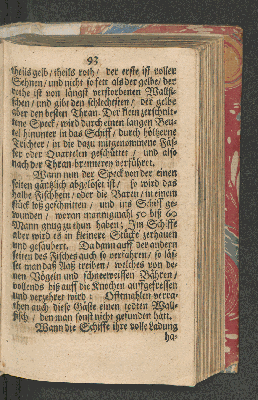 93
theils gelb / theils roth / der erste ist voller
Sehnen / und nicht so fett als der gelbe / der
rothe ist von längst verstorbenen Wallfi-
schen / und gibt den schlechsten / der gelbe
aber den besten Thran. Der klein zerschnit-
tene Speck / wird durch einen langen Beu-
tel hinunter in das Schiff / durch höltzerne
Trichter / in die dazu mitgenommene Fäs-
ser oder Quartelen geschüttet / und also
nach der Thran-brennerey verführet.
Wann nun der Speck von der einen
seiten gäntzlich abgelöset ist / so wird das
halbe Fischbein / oder die Baren / in einem
stück loß geschnitten / und ins Schiff ge-
wunden / woran mannigmahl 50 biß 60
Mann gnug zu thun haben; Im Schiffe
aber wird es in kleinere Stücke zerhauen
und gesäubert. Da dann auff der andern
seiten des Fisches auch so verfahren / so läs-
set man daß Aaß treiben / welches von de-
nen Vögeln und schneeweissen Bähren /
vollends biß auff die Knochen auffgefressen
und verzehret wird: Offtmahlen verra-
then auch diese Gäste einen todten Wall-
fisch / den man sonst nicht gefunden hätt.
Wann die Schiffe ihre volle Ladung
ha-